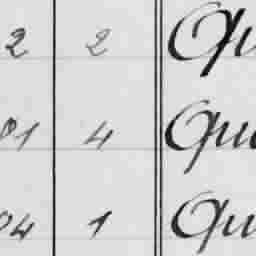 2 2 Qu
01 4 Qua
04 1 Qu